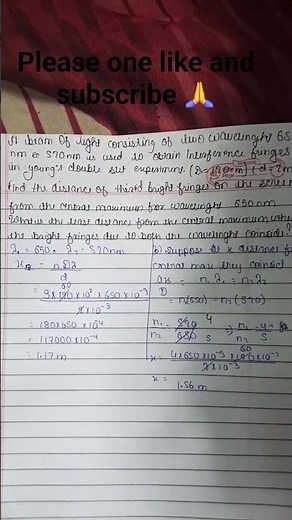 Please one like and
subscribe 🙏
A beam of light consisting of two wavelenghts 65
nm & 520nm is used to obtain Interference fringes
in young's double slit experiment (D=120cm) (d=2m
find the distance of third bright fringes on the screen
from the central maximum for wavelenght 650nm
whatis the least distance from the central maximum when
the bright fringes due to both the wavelenght coincide?
λ1 = 650. λ2 = 520nm
x = nDλ
d
= 3×120×10² × 650×10⁻⁹
2×10⁻³
= 180×650 × 10⁻⁴
= 117000×10⁻⁴
= 1.17 m
b) suppose at x distance fr
central max they coincid
n1 λ1 = n2 λ2
D
= n(650) = n2 (520)
n1 = 520 4
n2 650 5
n1 = 4
n2 5
x = 4×650×10⁻⁹ × 120×10⁻²
60
2×10⁻³
x =
1.56 m